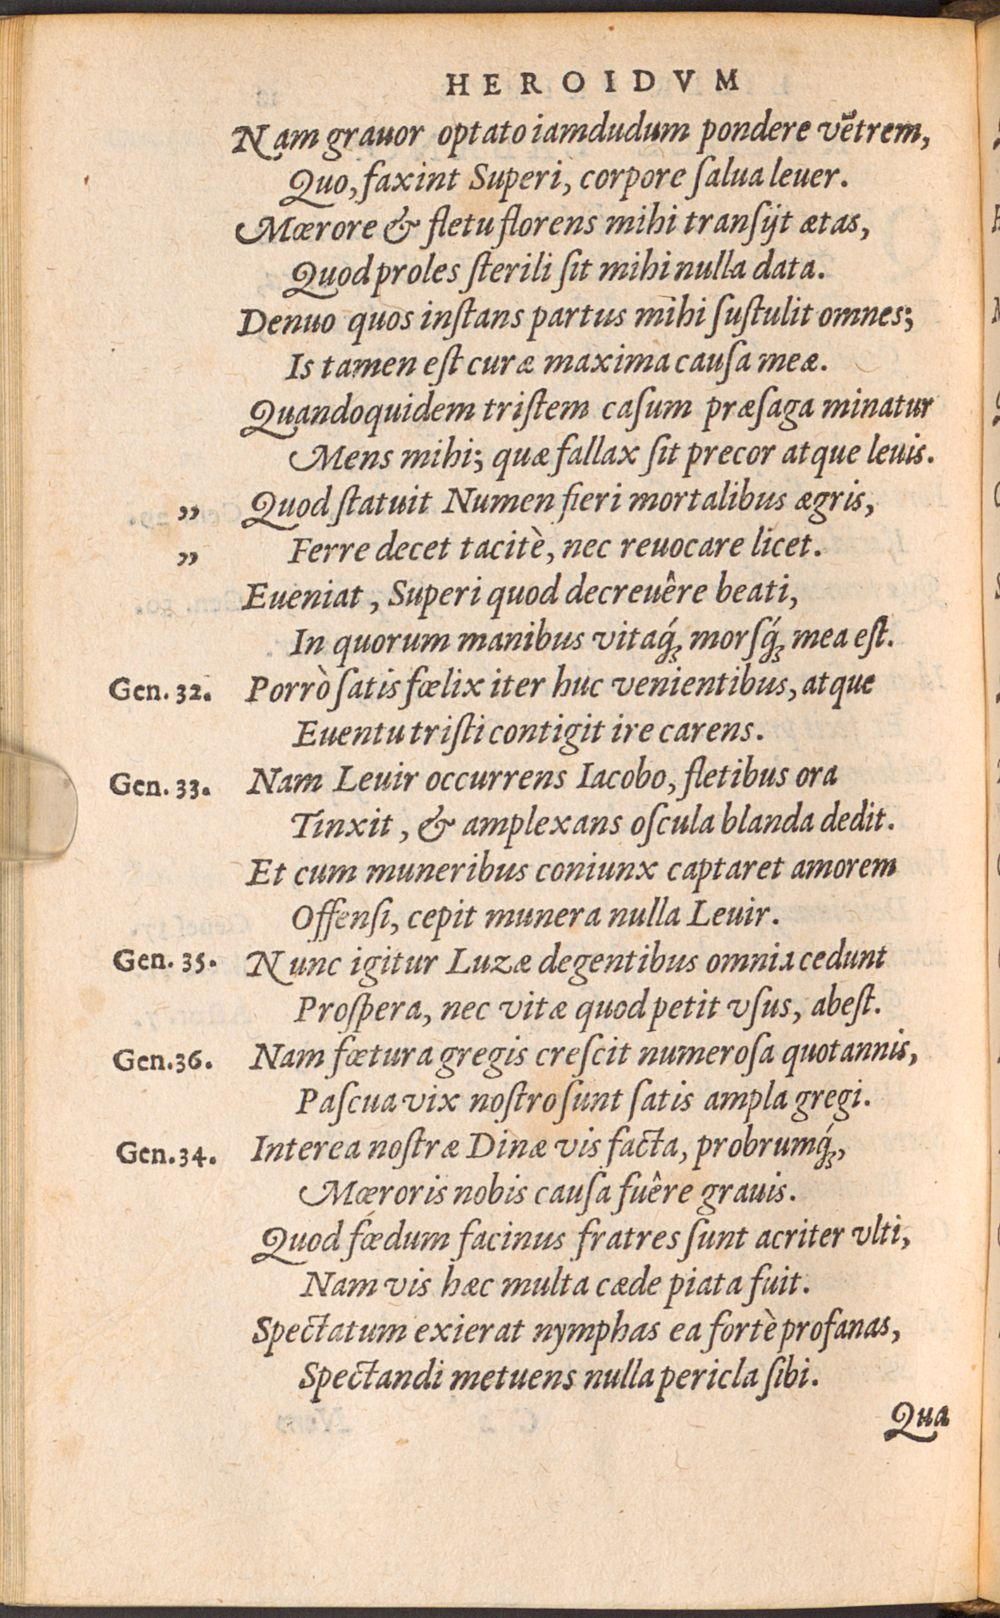 HEROIDVM
Nam grauor optato iamdudum pondere vẽtrem,
Quo, faxint Superi, corpore ſalua leuer.
Mœrore & fletu florens mihi tranſijt ætas,
Quod proles ſterili ſit mihi nulla data.
Denuo quos inſtans partus mihi ſuſtulit omnes;
Is tamen eſt curæ maxima cauſa meæ.
Quandoquidem triſtem caſum præſaga minatur
Mens mihi; quæ fallax ſit precor atque leuis.
„ Quod ſtatuit Numen fieri mortalibus ægris,
„ Ferre decet tacitè, nec reuocare licet.
Eueniat, Superi quod decreuêre beati,
In quorum manibus vitaq́; morſq́; mea eſt.
Gen. 32. Porrò ſatis fœlix iter huc venientibus, atque
Euentu triſti contigit ire carens.
Gen. 33. Nam Leuir occurrens Iacobo, fletibus ora
Tinxit, & amplexans oſcula blanda dedit.
Et cum muneribus coniunx captaret amorem
Offenſi, cepit munera nulla Leuir.
Gen. 35. Nunc igitur Luzæ degentibus omnia cedunt
Proſpera, nec vitæ quod petit vſus, abeſt.
Gen. 36. Nam fœtura gregis creſcit numeroſa quotannis,
Paſcua vix noſtro ſunt ſatis ampla gregi.
Gen. 34. Interea noſtræ Dinæ vis facta, probrumq́;,
Mœroris nobis cauſa fuêre grauis.
Quod fœdum facinus fratres ſunt acriter vlti,
Nam vis hæc multa cæde piata fuit.
Spectatum exierat nymphas ea fortè profanas,
Spectandi metuens nulla pericla ſibi.
Qua